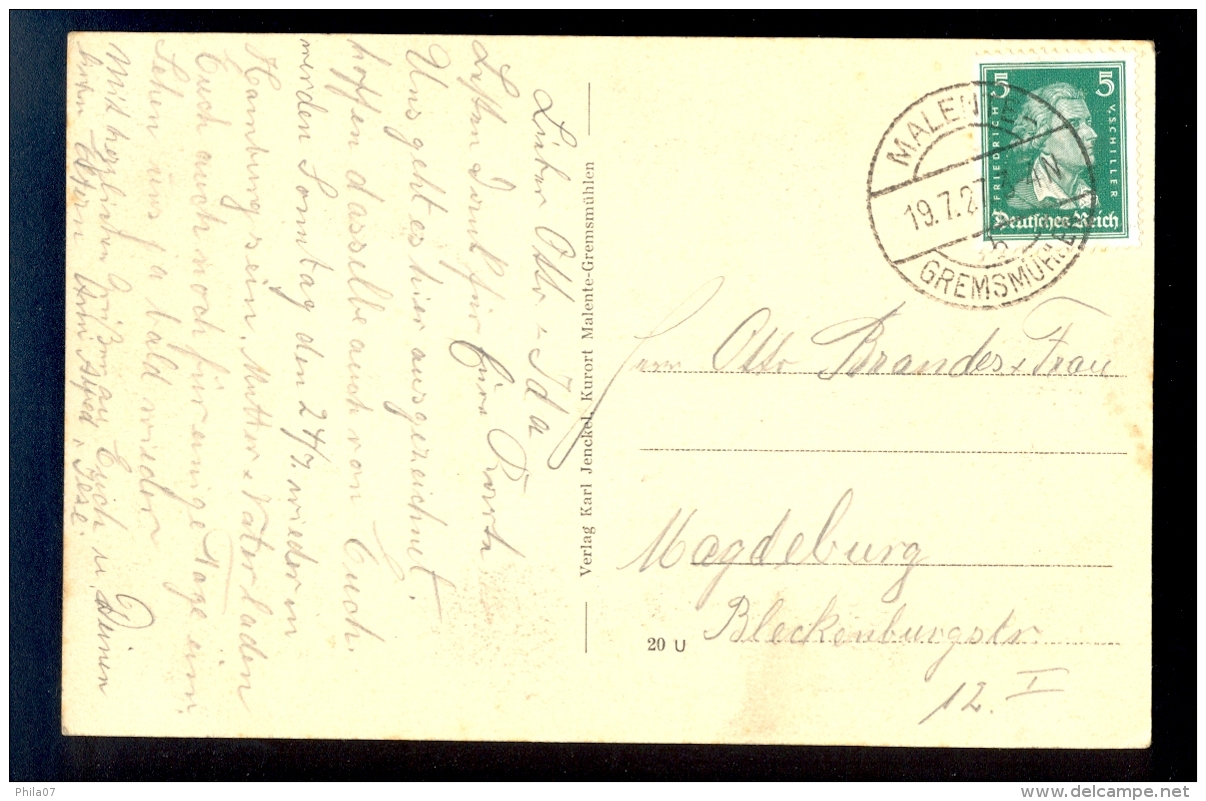 Lieber Otto u Ida
Besten Dank für Eure Karte
Uns geht es hier ausgezeichnet.
hoffen dasselbe auch von Euch.
werden Sonntag den 24/7. wieder in
Hamburg sein. Mutter u Vater laden
Euch auch noch für einige Tage ein.
Sehn uns ja bald wieder
Mit herzlichen Grüßen an Euch u. Deinen
Eltern
Verlag Karl Jenckel, Kurort Malente-Gremsmühlen
20 U
5 5
FRIEDRICH V. SCHILLER
Deutsches Reich
MALENTE
19.7.27
GREMSMÜHLEN
Herrn Otto Brandes u Frau
Magdeburg
Bleckenburgstr
12. I
Phila07
www.delcampe.net